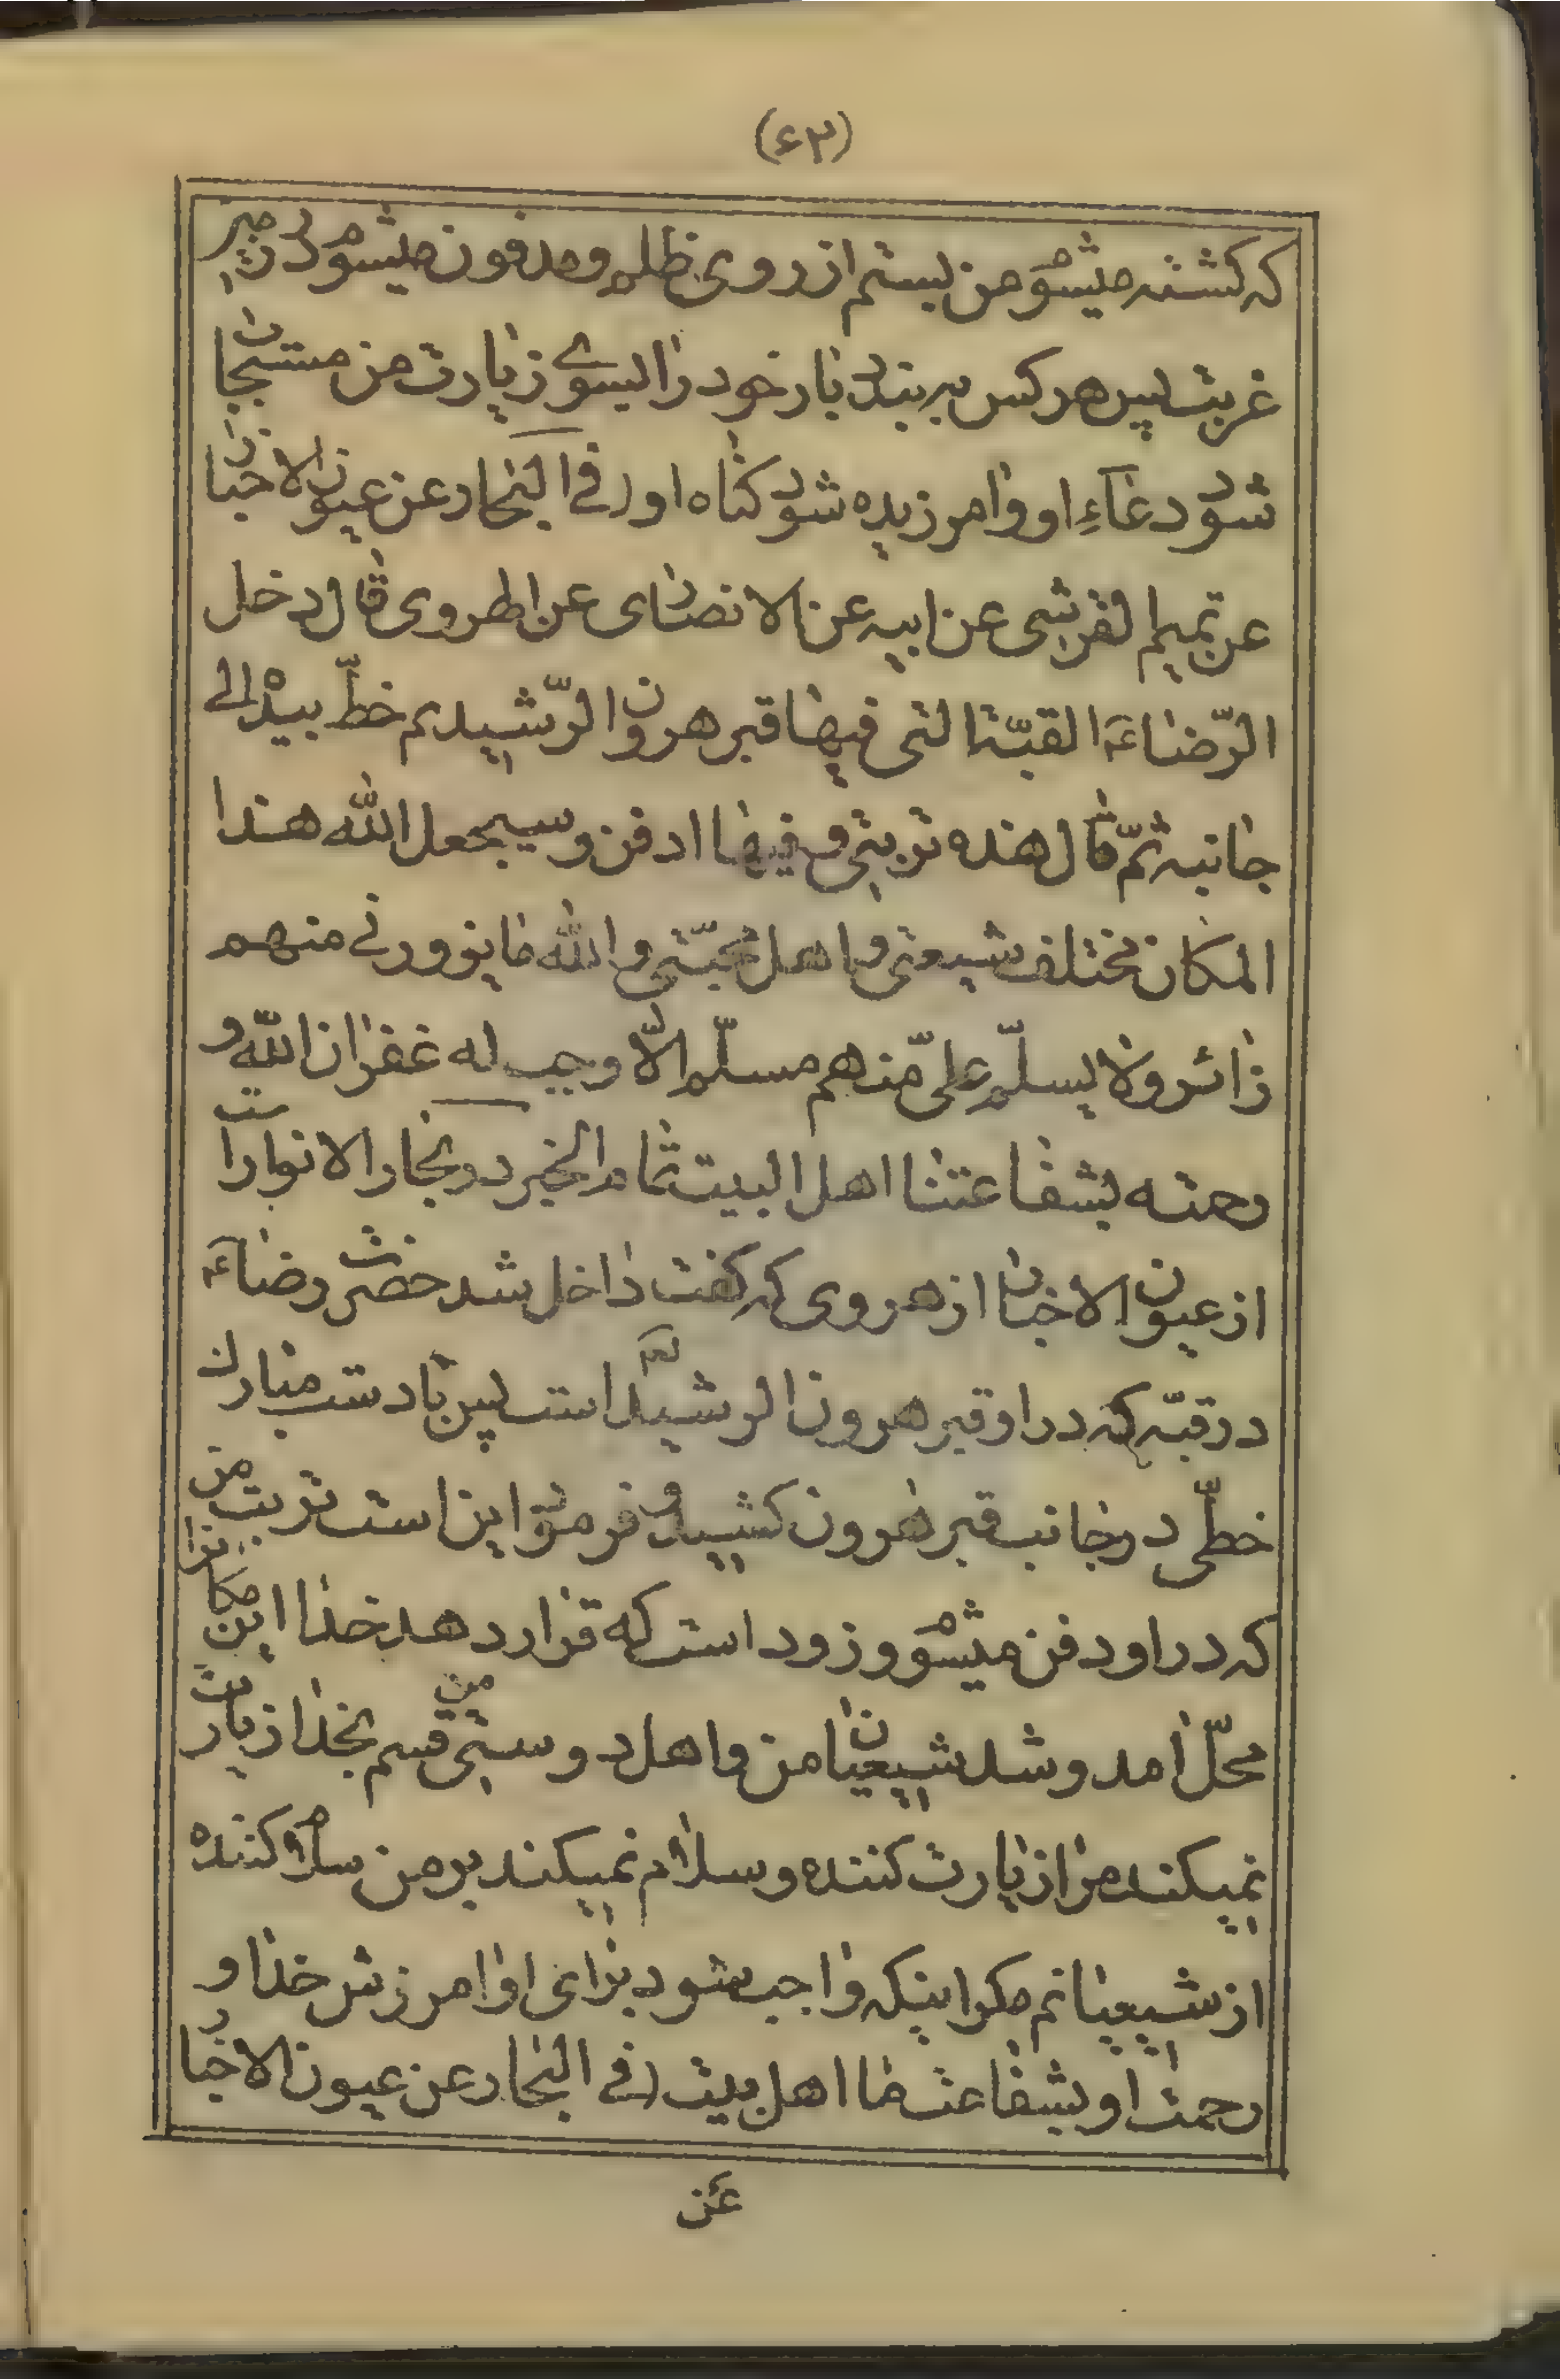 (۶۳)
که کشته میشوم من بستم از روی ظلم و مدفون میشوم در
غربت پس هر کس به بندد بار خود را بسوی زیارت من مستجاب
شود دعاء او و امرزیده شود کناه او (فی البحار عن عیون الاخبار
عن تمیم القرشی عن ابیه عن الانصاری عن الهروی قال دخل
الرّضاء ع القبّة التی فیها قبر هرون الرّشید ثم خطّ بیده الی
جانبه ثمّ قال هذه تربتی و فیها ادفن و سیجعل الله هذا
المکان مختلف شیعتی و اهل محبّتی و الله ما یزورنی منهم
زائر ولا یسلّم علیّ منهم مسلّم الّا وجب له غفران الله و
رحمته بشفاعتنا اهل البیت تمام الخبر در بحار الانوار است
از عیون الاخبار از هروی که کفت داخل شد حضرت رضاء ع
در قبّه که در او قبر هرون الرشید لعه است پس با دست مبارک
خطّی در جانب قبر هرون کشید و فرمود این است تربت من
که در او دفن میشوم و زود است که قرار دهد خدا این مکانرا
محلّ امد و شد شیعیان من و اهل دوستی من قسم بخدا زیارت
نمیکند مرا زیارت کننده و سلام نمیکند بر من سلام کننده
از شیعیانم مکر اینکه واجب شود برای او امرزش خدا و
رحمت او بشفاعت ما اهل بیت (فی البحار عن عیون الاخبار
عن